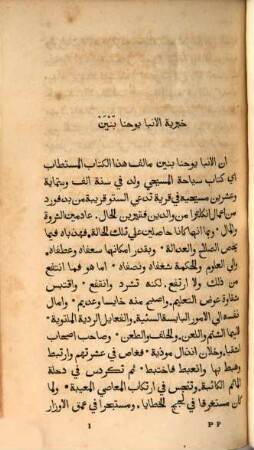 خبرية الانبا يوحنا بنين
ان الانبا يوحنا بنين مالف هذا الكتاب المستطاب
اي كتاب سياحة المسيحي ولد في سنة الف وستماية
وعشرين مسيحيه في قرية تدعي الستو قريبة من بدفورد
من اعمال انكلترا من والدين فقيرين للحال. عادمين الثروة
والمال. وبما انها كانا حاصلين علي تلك للحالة. فهذباه فيما
يخص الصلاح والعدالة. وبقدر امكانها سعفاه وعطفاه.
والي العلوم والحكمة شغفاه ونصفاه. اما هو فما انتفع
من ذلك ولا ارتفع. لكنه تشرد وانقفع. واقتبس
شقاوة عوض التعليم. واصبي منه خايسا وعديم. وامال
نفسه الي الامور اليابسة السبتية. والفعايل الردية الماتوية.
فيها الشتم واللعن. وللحلف والطعن. وصاحب اصحاب
اشقيا. وخلان انذال موذية. فغاص في عشرتهم وارتبط
وغبط بها وانعبط فاختبط. ثم تكردس في دحلة
الماثم الكائبة. وتغيس في ارتكاب المعاصي المعيبة. ولما
كان مستغرقا في لجج للخطايا. ومستبحرا في عمق الاوزار
1 P F